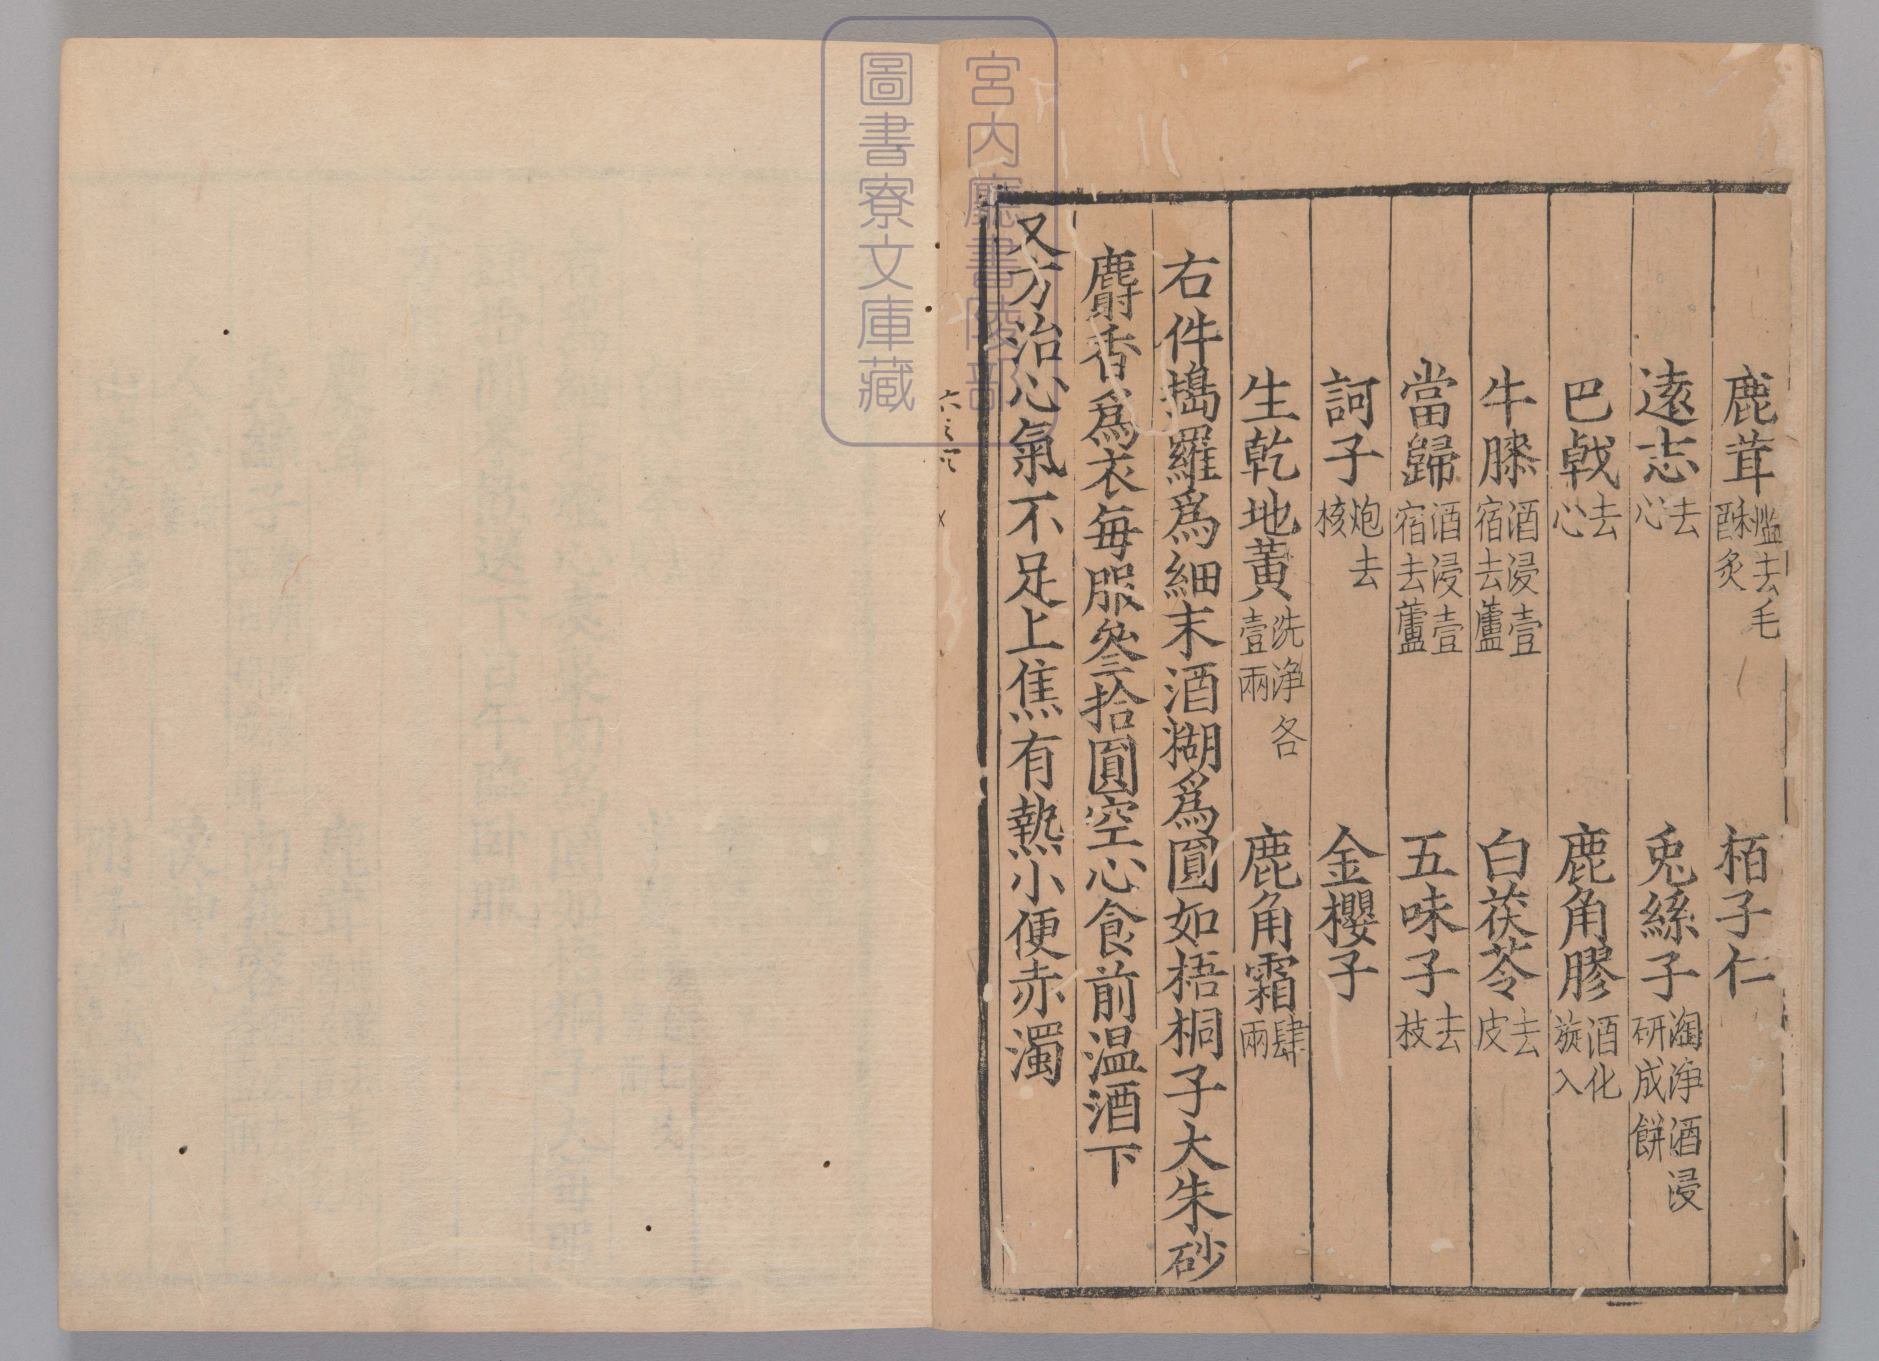 鹿茸燎去毛酥炙 栢子仁
遠志去心 兎絲子淘浄酒浸研成餅
巴戟去心 鹿角膠酒化旋入
牛膝酒浸壹宿去蘆 白茯苓去皮
當歸酒浸壹宿去蘆 五味子去枝
訶子炮去核 金櫻子
生乾地黄洗浄各壹兩 鹿角霜肆兩
右件擣羅爲細末酒糊爲圓如梧桐子大朱砂
麝香爲衣每服叄拾圓空心食前温酒下
又方治心氣不足上焦有熱小便赤濁
宮内廳書陵部
圖書寮文庫藏